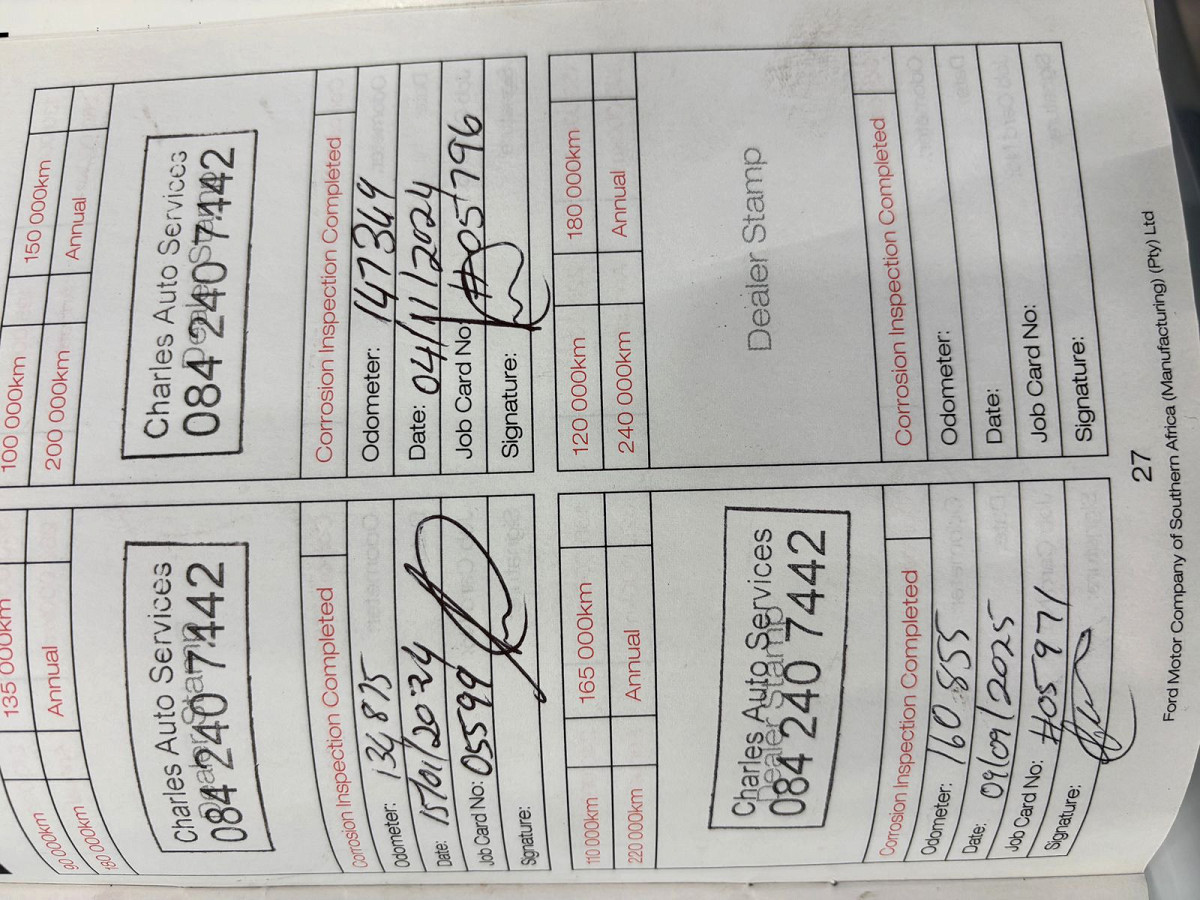 90 000km 135 000km
180 000km Annual
Charles Auto Services
Dealer Stamp
084 240 7442
Corrosion Inspection Completed
Odometer: 134 875
Date: 15/01/2024
Job Card No: 05599
Signature:
100 000km 150 000km
200 000km Annual
Charles Auto Services
Dealer Stamp
084 240 7442
Corrosion Inspection Completed
Odometer: 147349
Date: 04/11/2024
Job Card No: #05796
Signature:
110 000km 165 000km
220 000km Annual
Charles Auto Services
Dealer Stamp
084 240 7442
Corrosion Inspection Completed
Odometer: 160 855
Date: 09/09/2025
Job Card No: #05971
Signature:
120 000km 180 000km
240 000km Annual
Dealer Stamp
Corrosion Inspection Completed
Odometer:
Date:
Job Card No:
Signature:
27
Ford Motor Company of Southern Africa (Manufacturing) (Pty) Ltd